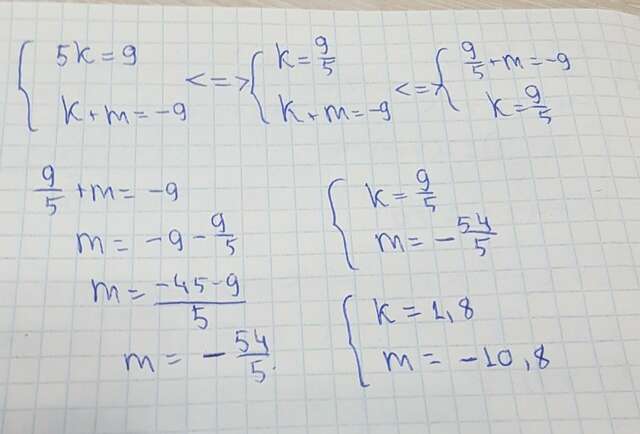 { 5k = 9 <=> { k = 9/5 <=> { 9/5 + m = -9
k + m = -9 k + m = -9 k = 9/5
9/5 + m = -9
m = -9 - 9/5
m = (-45-9)/5
m = - 54/5
{ k = 9/5
m = - 54/5
{ k = 1,8
m = -10,8